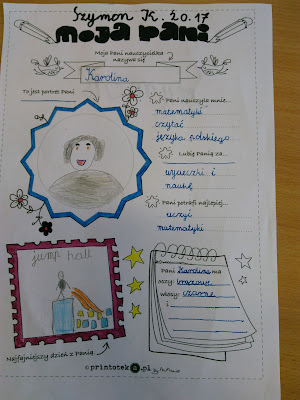 Szymon K. 20.17
MOJA PANI
Moja Pani nauczycielka
nazywa się
Karolina
To jest portret Pani
Pani nauczyła mnie...
matematyki
czytać
języka polskiego
Lubię Panią za...
wycieczki i
naukę
Pani potrafi najlepiej...
uczyć
matematyki
jump hall
Najfajniejszy dzień z Panią
Pani Karolina ma
oczy: brązowe
włosy: czarne
i
©printoteka.pl